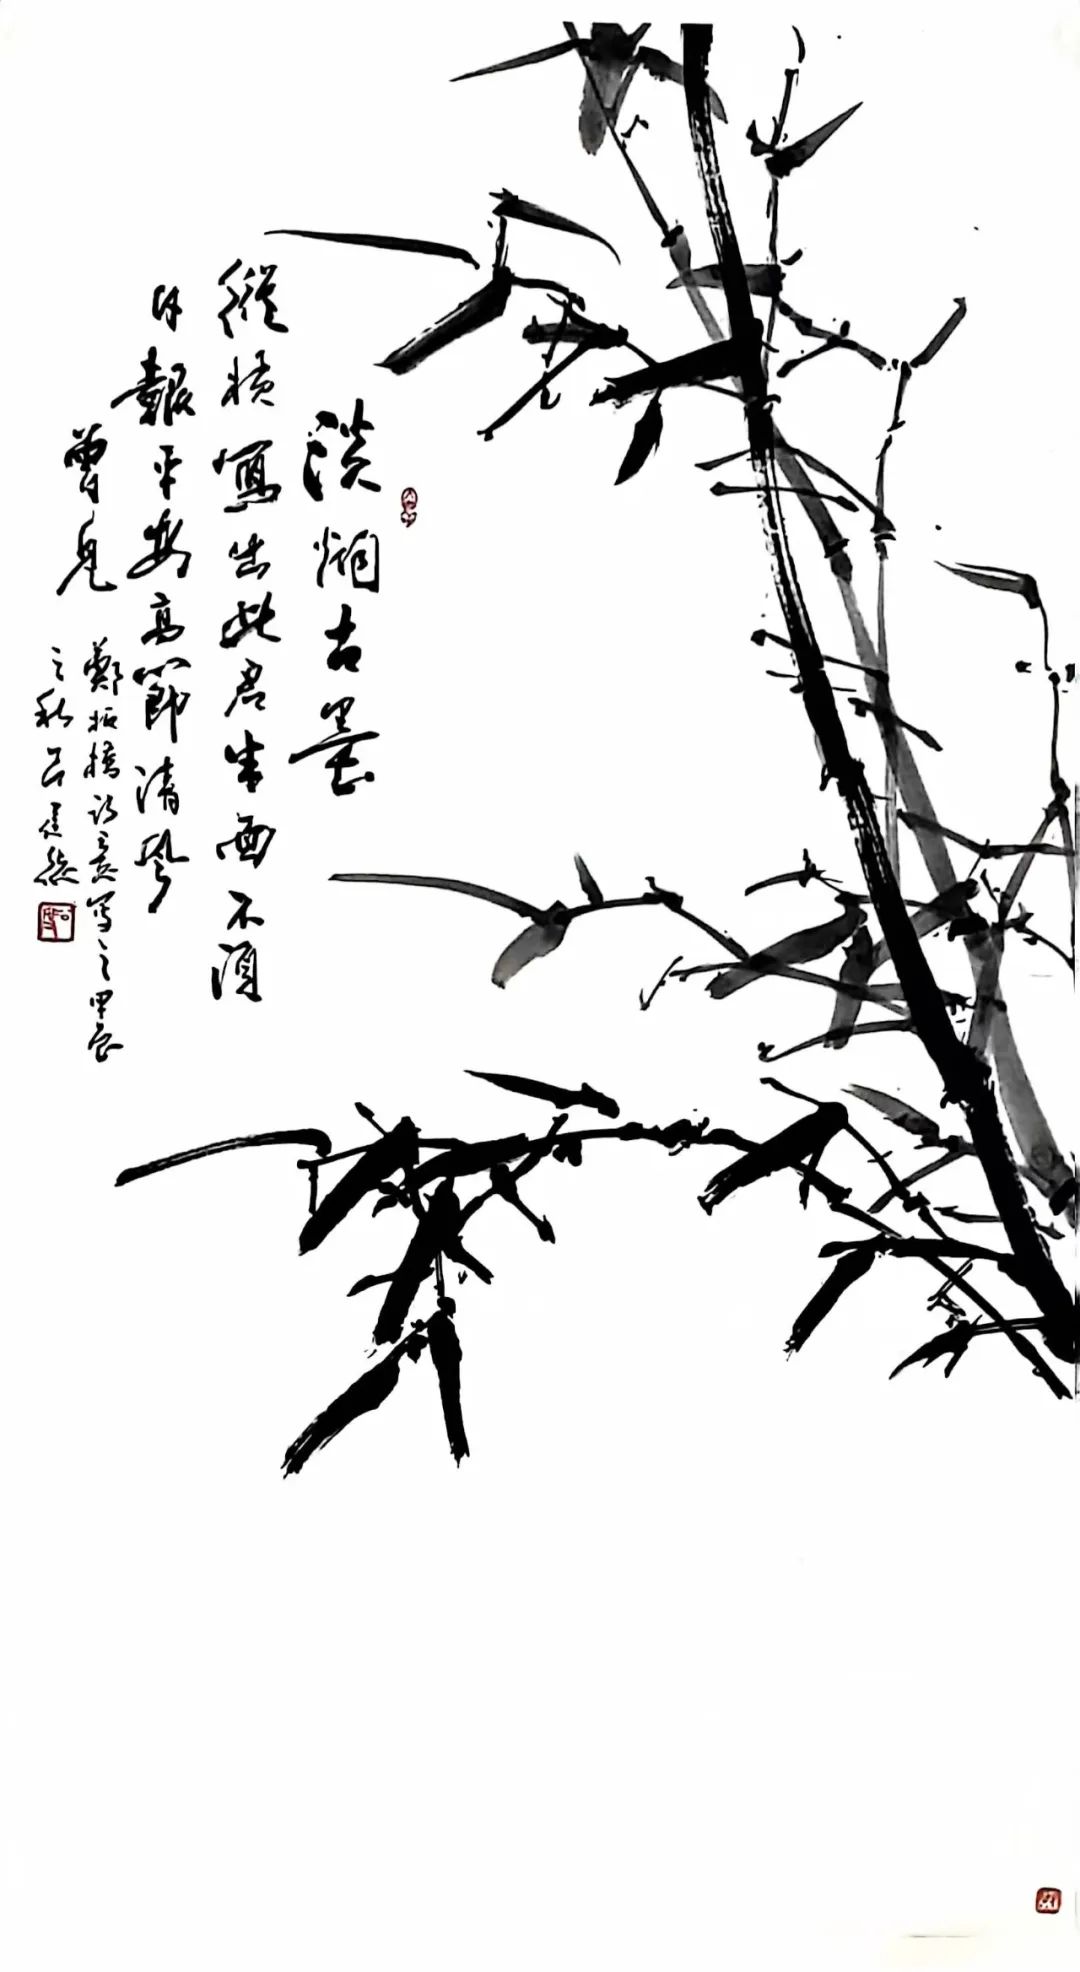 淡烟古墨
縱橫寫出此君半面不須
日報平安高節清風
曾見
鄭板橋詩意寫之甲辰
之秋